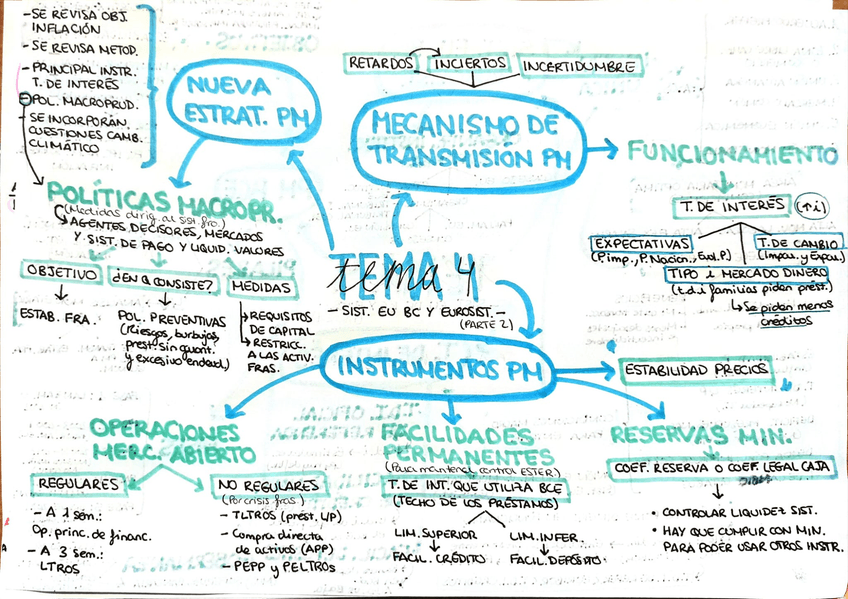 - SE REVISA OBJ.
INFLACIÓN
- SE REVISA METOD.
- PRINCIPAL INSTR.
T. DE INTERÉS
POL. MACROPRUD.
- SE INCORPORÁN
CUESTIONES CAMB.
CLIMÁTICO
NUEVA
ESTRAT. PM
RETARDOS INCIERTOS INCERTIDUMBRE
MECANISMO DE
TRANSMISIÓN PM
FUNCIONAMIENTO
T. DE INTERÉS (↑i)
EXPECTATIVAS
(P.imp., P.Nacion., Evol.P)
T. DE CAMBIO
(Impau. y Expau.)
TIPO i MERCADO DINERO
(t.d.i familias piden prést.)
↳ Se piden menos
créditos
POLÍTICAS MACROPR.
(Medidas dirig. al sist. fro.)
AGENTES DECISORES, MERCADOS
Y SIST. DE PAGO Y LIQUID. VALORES
OBJETIVO
ESTAB. FRA.
¿EN Q CONSISTE?
POL. PREVENTIVAS
(Riesgos, burbujas,
prest. sin garant.
y excesivo endeud.)
MEDIDAS
REQUISITOS
DE CAPITAL
RESTRICC.
A LAS ACTIV.
FRAS.
TEMA 4
tema 4
- SIST. EU BC Y EUROSIST. -
(PARTE 2)
INSTRUMENTOS PM
ESTABILIDAD PRECIOS
OPERACIONES
MERC. ABIERTO
REGULARES
- A 1 sem.:
Op. princ. de financ.
- A 3 sem.:
LTROS
NO REGULARES
(Por crisis fras)
- TLTROS (prést. L/P)
- Compra directa
de activos (APP)
- PEPP y PELTROS
FACILIDADES
PERMANENTES
(Para mantener control ESTER)
T. DE INT. QUE UTILIZA BCE
(TECHO DE LOS PRÉSTANOS)
LIM. SUPERIOR
FACIL. CRÉDITO
LIM. INFER.
FACIL. DEPÓSITO
RESERVAS MIN.
COEF. RESERVA O COEF. LEGAL CAJA
• CONTROLAR LIQUIDEZ SIST.
• HAY QUE CUMPLIR CON MIN.
PARA PODER USAR OTROS INSTR.